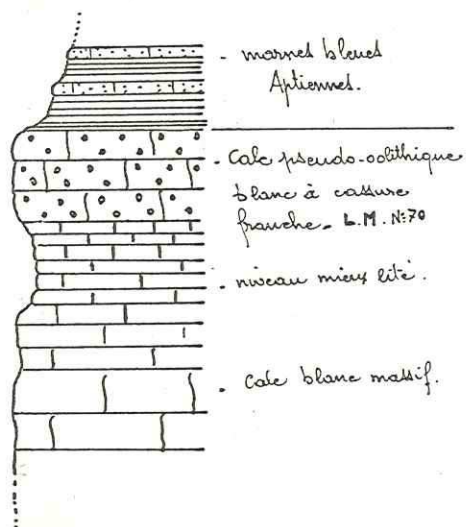 - marnes bleues
Aptiennes.
- Calc pseudo-oolithique
blanc à cassure
franche. L.M. N:70
- niveau mieux lité.
- calc blanc massif.